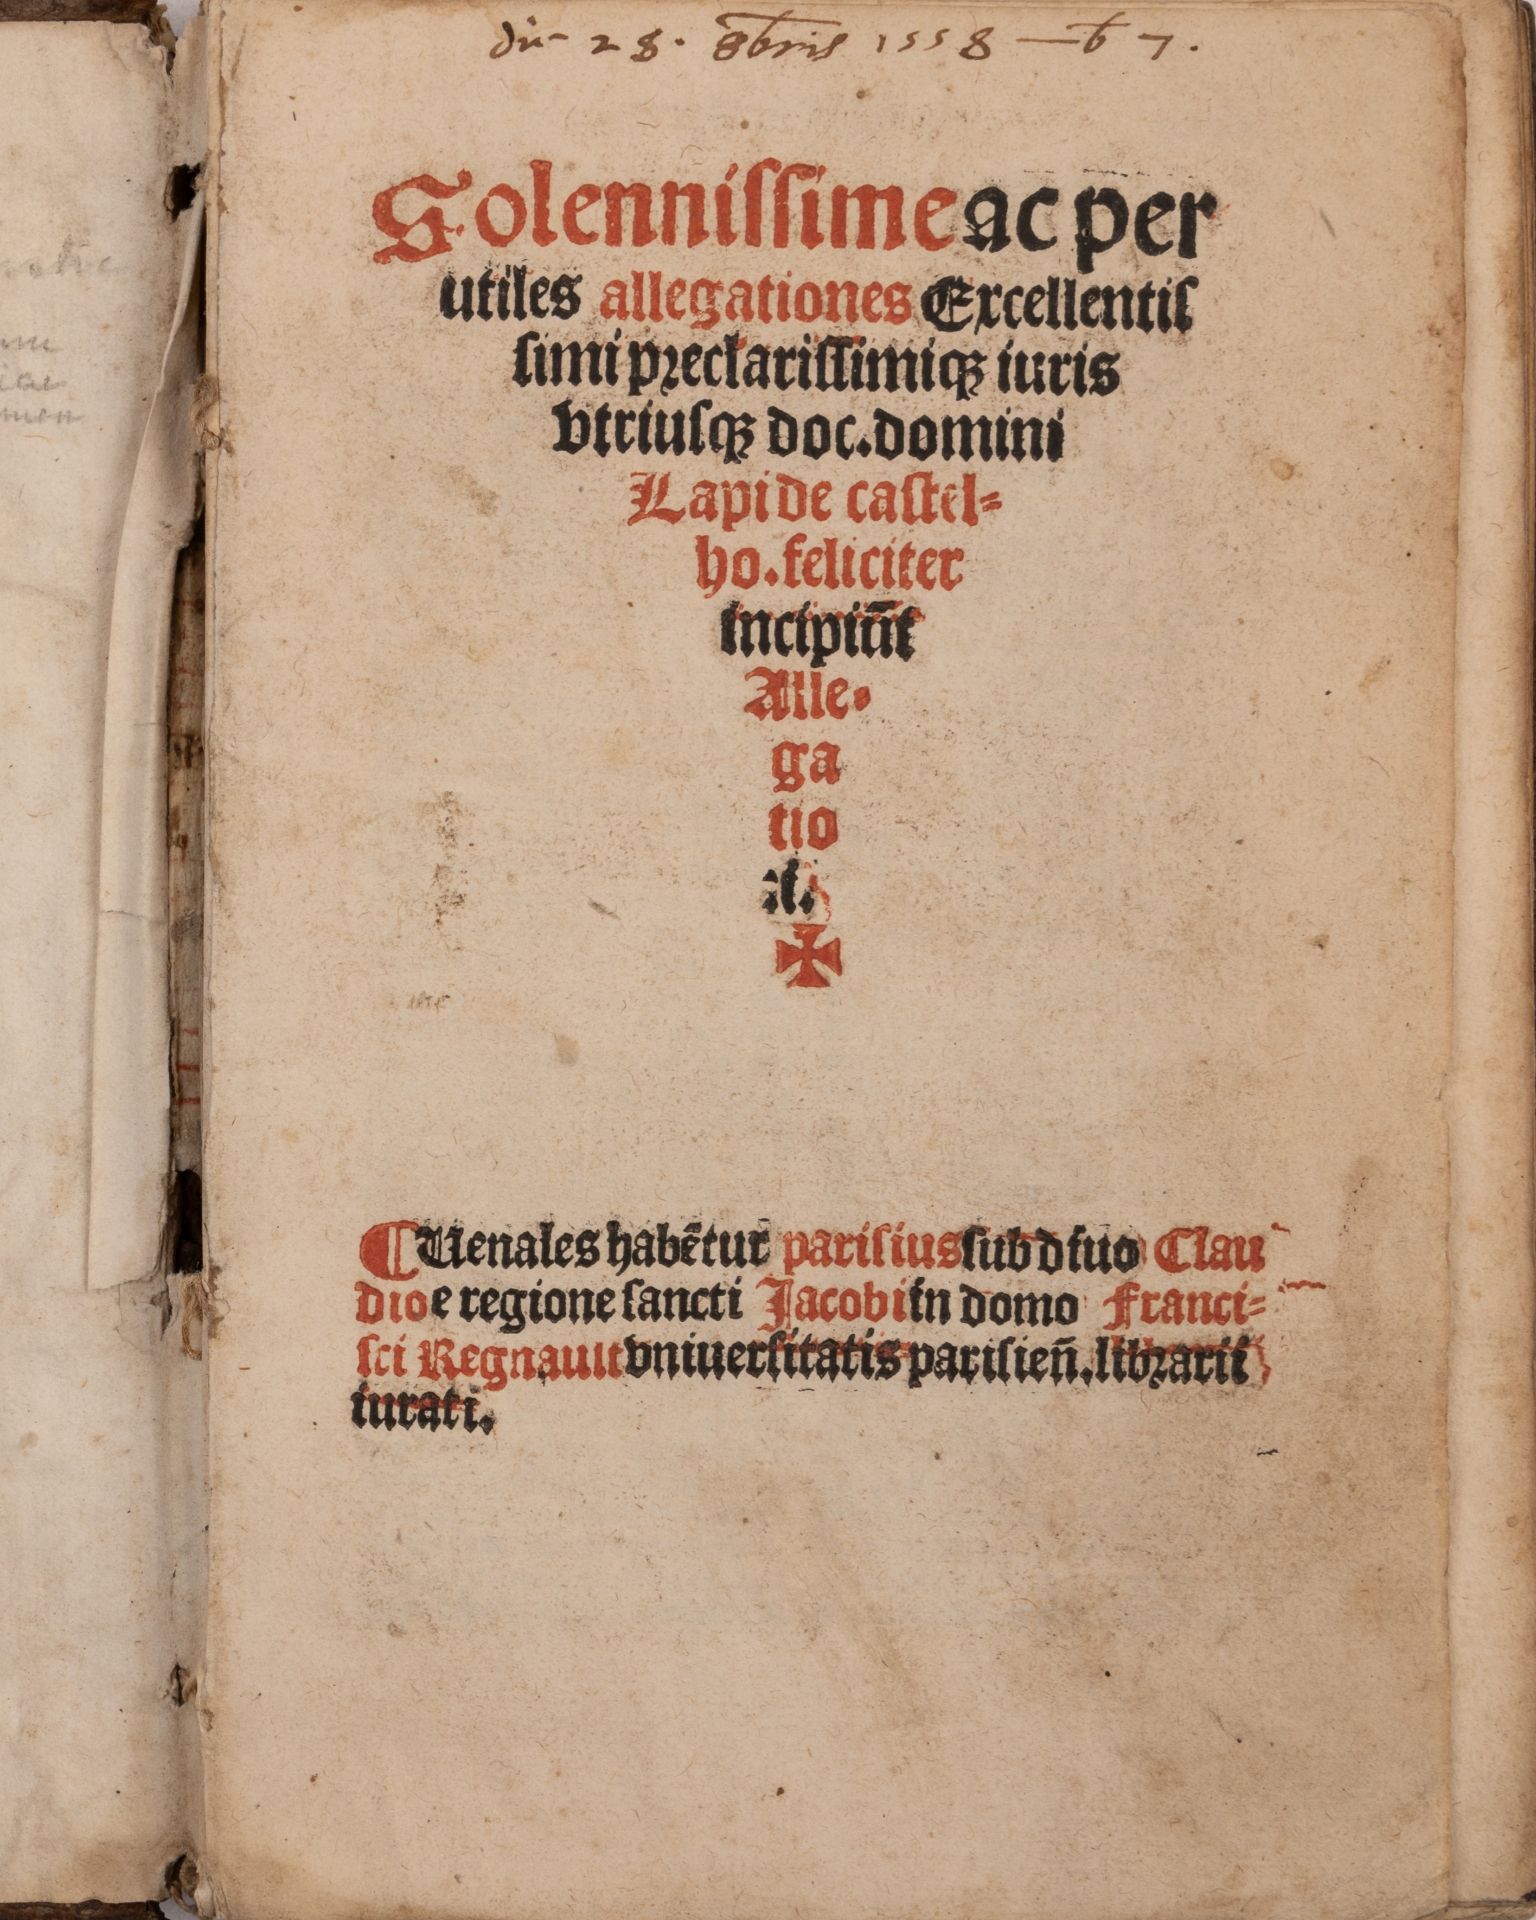 28. 8bris 1558
Solennissime ac per
utiles allegationes Excellentis
simi preclarissimiqꝫ iuris
vtriusqꝫ doc. domini
Lapi de castel-
ho. feliciter
incipiūt
Alle-
ga
tio
✠
¶ Uenales habētur parisius sub d iuo Clau
dio e regione sancti Jacobi in domo Franci-
sci Regnault vniuersitatis parisieñ. librarii
iurati.